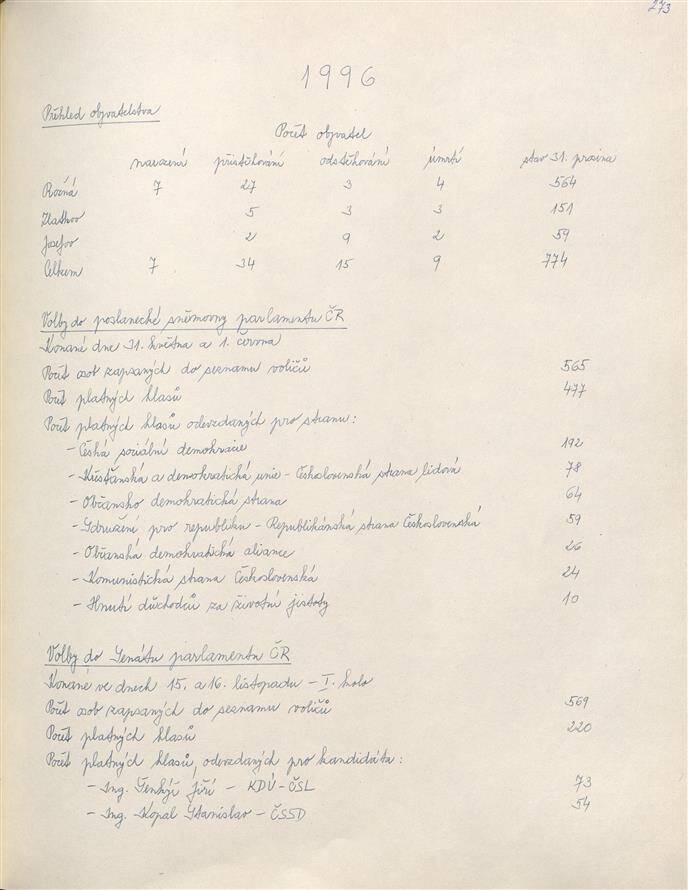 273
1996
Přehled obyvatelstva
Počet obyvatel
narození přistěhování odstěhování úmrtí stav 31. prosince
Rožná 7 27 3 4 564
Zlatkov 5 3 3 151
Josefov 2 9 2 59
Celkem 7 34 15 9 774
Volby do poslanecké sněmovny parlamentu ČR
Konané dne 31. května a 1. června
Počet osob zapsaných do seznamu voličů 565
Počet platných hlasů 477
Počet platných hlasů odevzdaných pro stranu:
- Česká sociální demokracie 192
- Křesťanská a demokratická unie - Československá strana lidová 78
- Občansko demokratická strana 64
- Sdružení pro republiku - Republikánská strana Československá 59
- Občanská demokratická aliance 26
- Komunistická strana Československá 24
- Hnutí důchodců za životní jistoty 10
Volby do Senátu parlamentu ČR
Konané ve dnech 15. a 16. listopadu - I. kolo
Počet osob zapsaných do seznamu voličů 569
Počet platných hlasů 220
Počet platných hlasů, odevzdaných pro kandidáta:
- Ing. Šenkýř Jiří - KDÚ - ČSL 73
- Ing. Kopal Stanislav - ČSSD 54